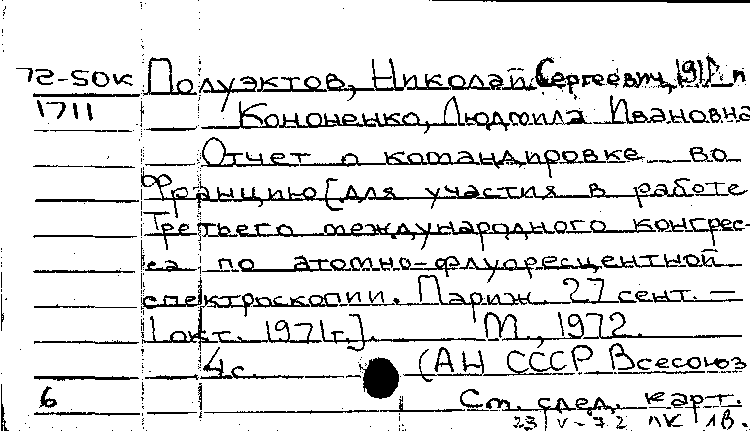 72-50К Полуэктов, Николай Сергеевич, 191 и
1711 Кононенко, Людмила Ивановна
Отчет о командировке во
Францию [для участия в работе
Третьего международного конгрес-
са по атомно-флуоресцентной
спектроскопии. Париж. 27 сент. —
1 окт. 1971г.]. М., 1972.
4с. (АН СССР Всесоюз
6 См. след. карт.
23/V-72 ЛК